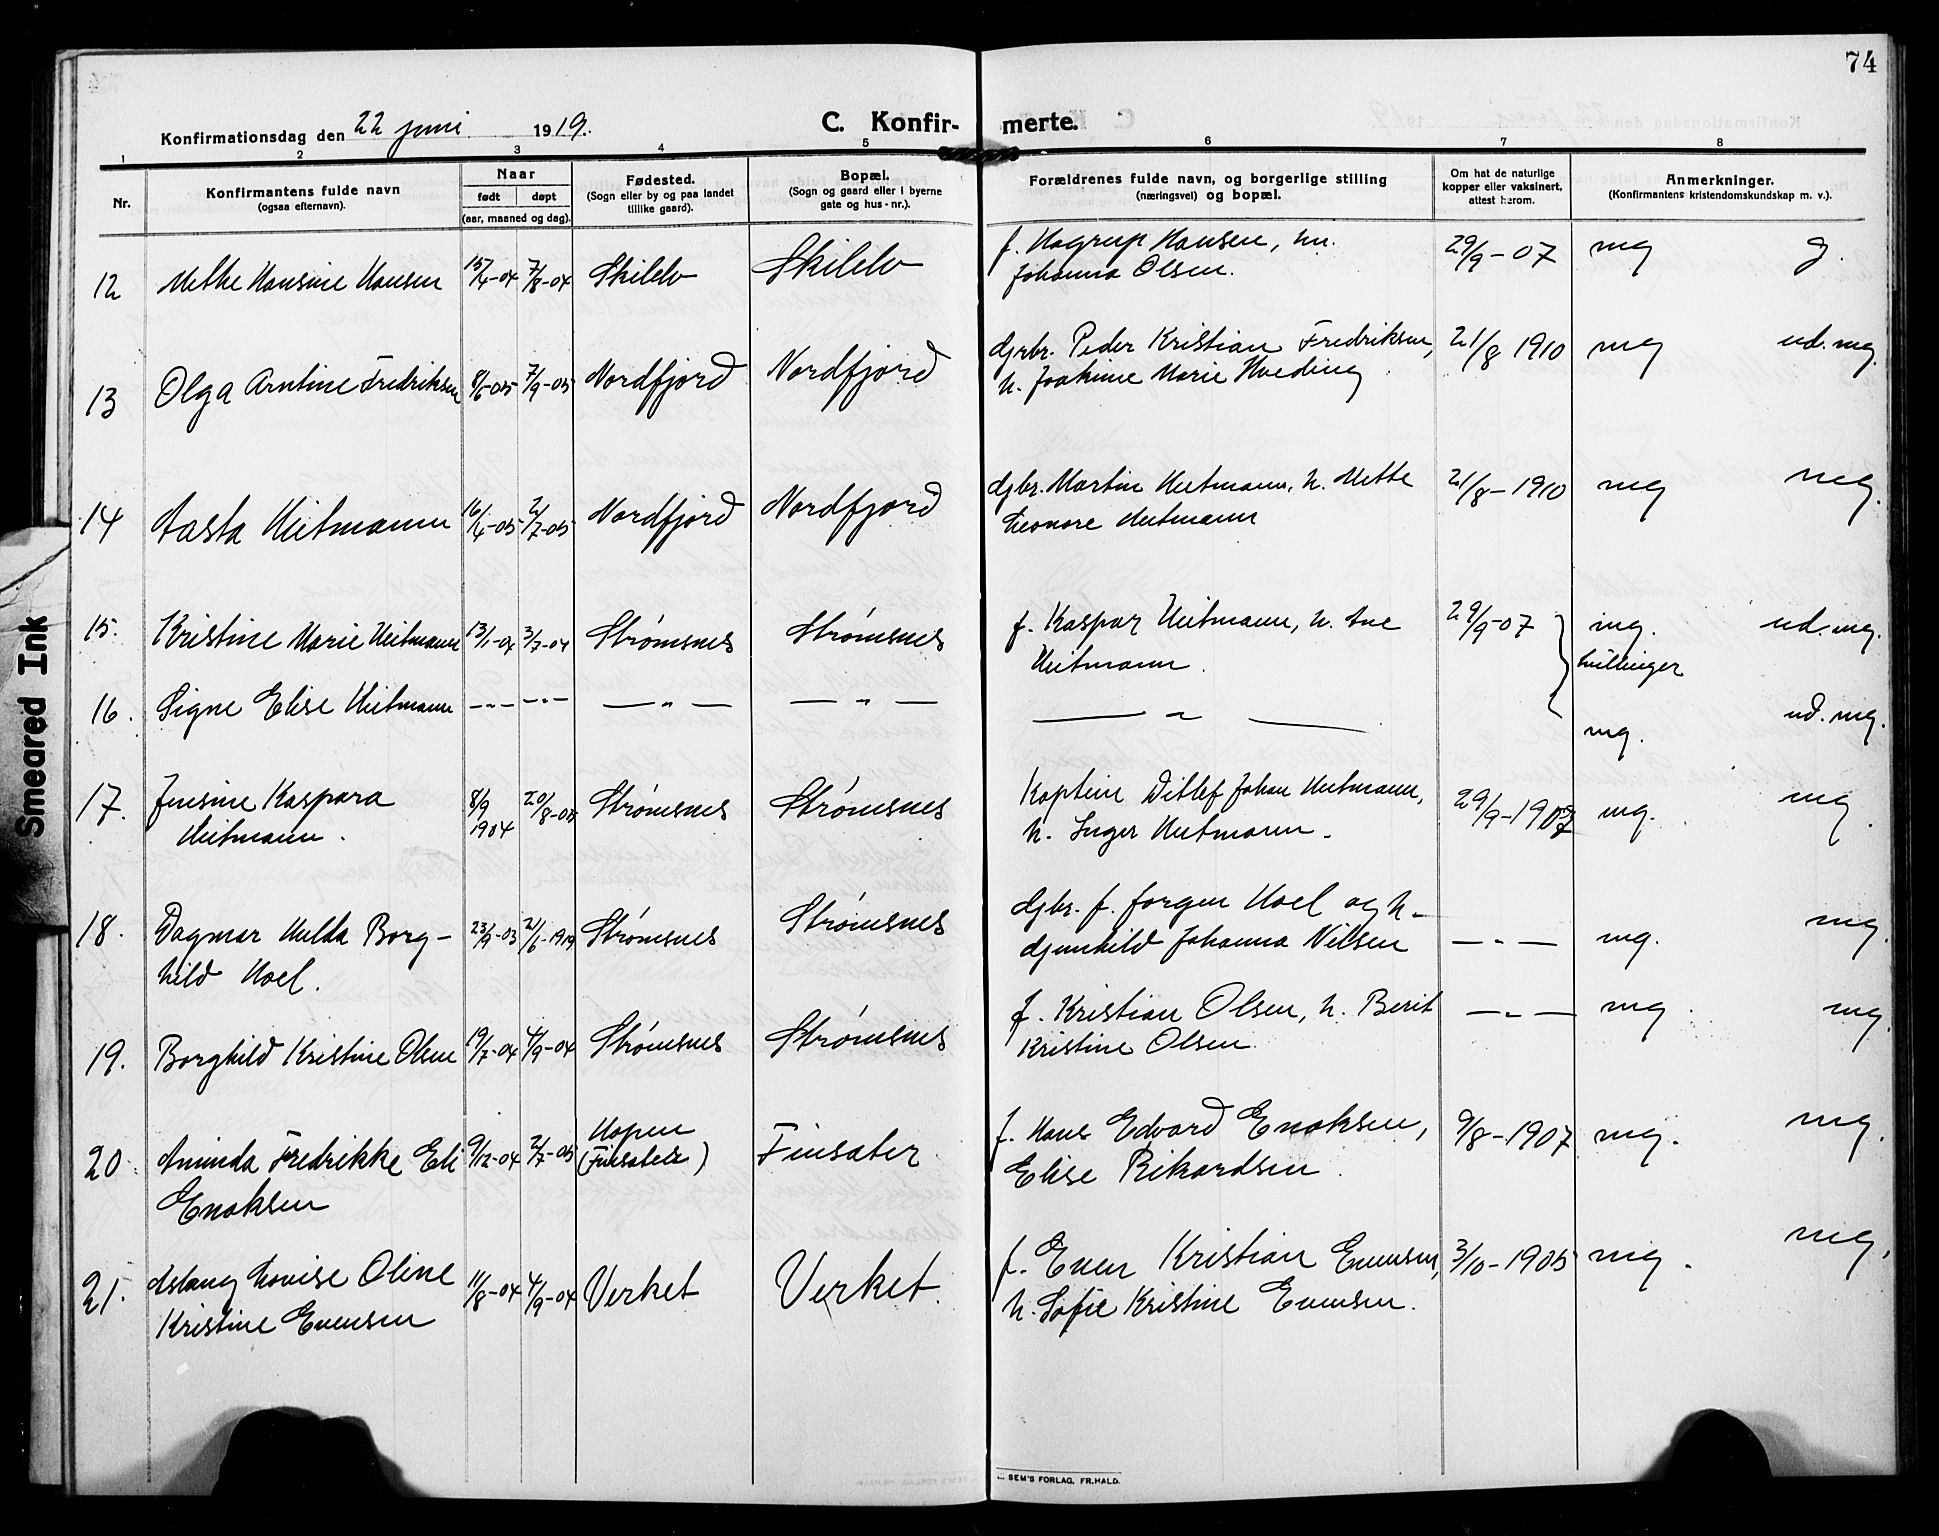 74
Konfirmationsdag den 22 juni 1919.
C. Konfir- merte.
1 2 3 4 5 6 7 8
Nr.
Konfirmantens fulde navn
(ogsaa efternavn).
Naar
født døpt
(aar, maaned og dag).
Fødested.
(Sogn eller by og paa landet
tillike gaard).
Bopæl.
(Sogn og gaard eller i byerne
gate og hus-nr.).
Forældrenes fulde navn, og borgerlige stilling
(næringsvei) og bopæl.
Om hat de naturlige
kopper eller vaksinert,
attest herom.
Anmerkninger.
(Konfirmantens kristendomskundskap m. v.).
12 Methe Hansine Hansen 15/4-04 7/8-04 Skilelv Skilelv f. Hagrup Hansen, hu. 29/9-07 mg g.
Johanna Olsen.
13 Olga Arntine Fredriksen 8/6-05 7/9-05 Nordfjord Nordfjord gbr. Peder Kristian Fredriksen, 21/8 1910 mg ud. mg.
h. Joakime Marie Hveding
14 Aasta Heitmann 16/4-05 2/7-05 Nordfjord Nordfjord gbr. Martin Heitmann, h. Mette 21/8-1910 mg mg.
Leonore Heitmann
15. Kristine Marie Heitmann 13/1-04 3/7-04 Strømsnes Strømsnes f. Kaspar Heitmann, h. Ane 29/9-07 mg. ud. mg.
Heitmann. tvillinger
16. Signe Elise Heitmann -"- -"- — " — — " — — " — mg. ud. mg.
17. Jensine Kaspara 8/9 1904 20/8-05 Strømsnes Strømsnes Kaptein Ditlef Johan Heitmann, 29/9-1907 mg. mg.
Heitmann. h. Inger Heitmann.
18. Dagmar Hulda Borg- 23/9-03 2/6-1919 Strømsnes Strømsnes gbr. f. Jørgen Hoel og h. —"— mg. mg.
hild Hoel. Gunhild Johanna Nilsen
19. Borghild Kristine Olsen 19/7-04 4/9-04 Strømsnes Strømsnes f. Kristian Olsen, h. Berit —"— mg. mg.
Kristine Olsen
20 Aminda Fredrikke Eli 9/12-04 2/7-05 Hopen Finsæter f. Hans Edvard Enoksen, 9/8-1907 mg. mg.
Enoksen (Finsæter) Elise Rikardsen.
21. Aslaug Lovise Oline 11/8-04 4/9-04 Verket Verket. f. Even Kristian Evensen, 3/10-1905 mg. mg.
Kristine Evensen h. Sofie Kristine Evensen.
SEM'S FORLAG, FR.HALD.
Smeared Ink